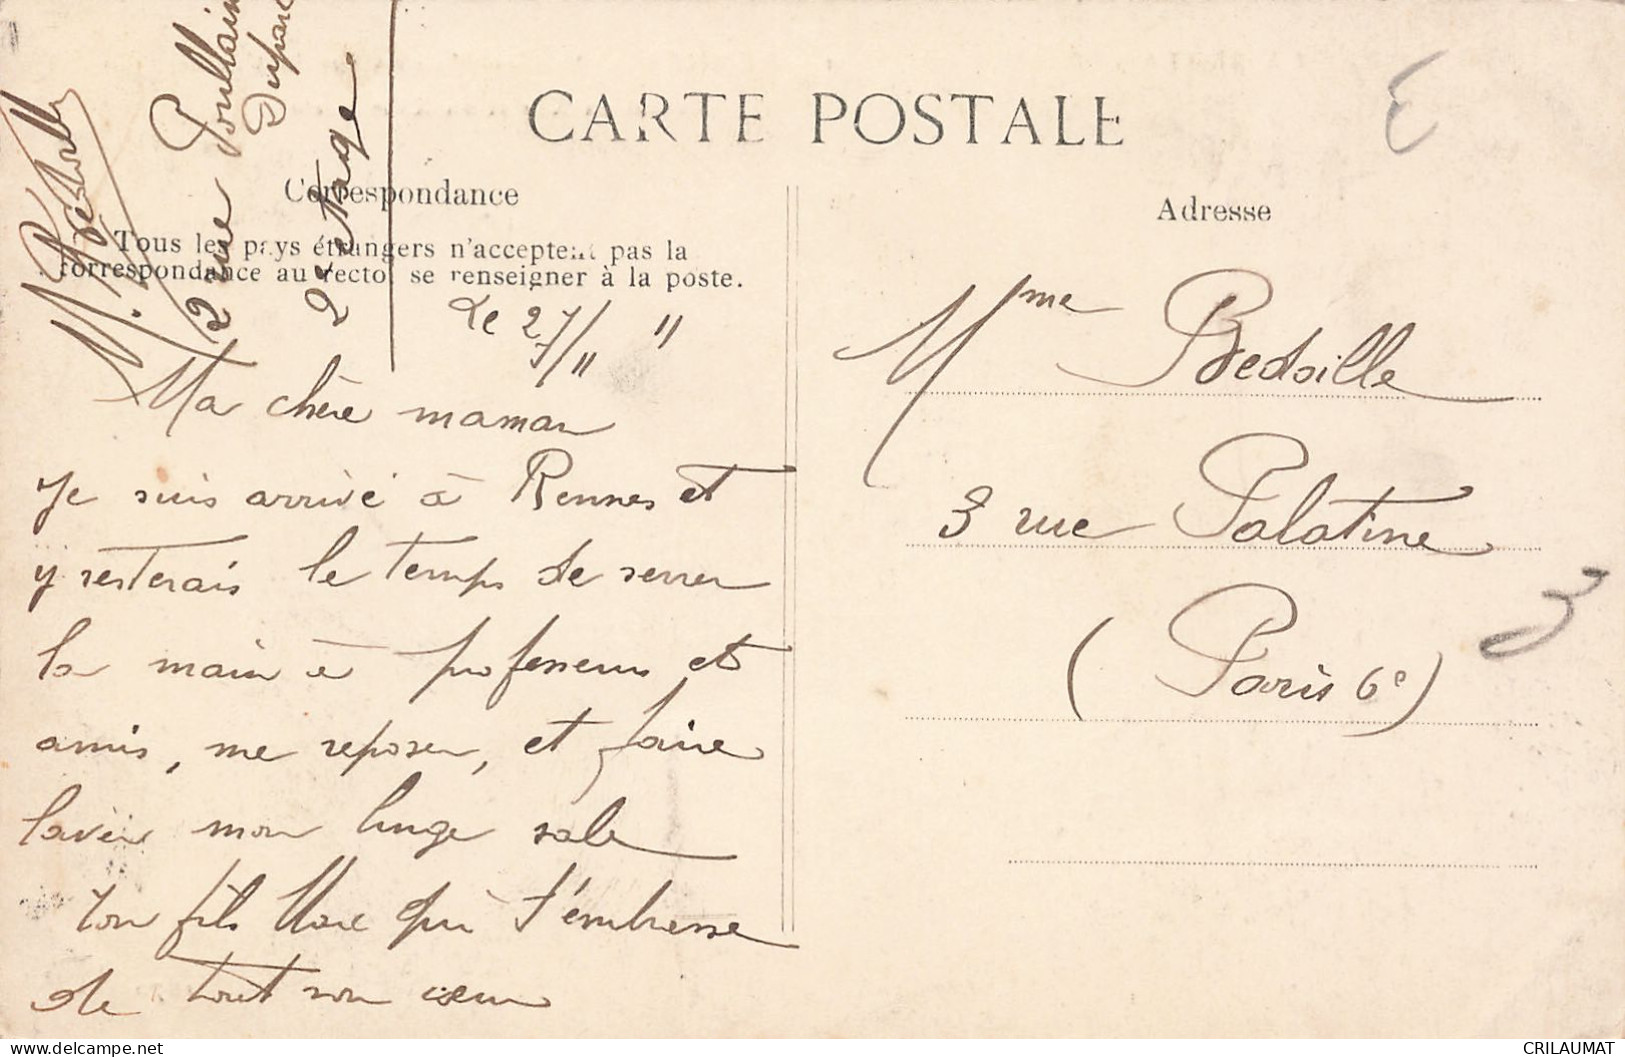 CARTE POSTALE
Correspondance
Tous les pays étrangers n'acceptent pas la
correspondance au recto, se renseigner à la poste.
M. Bedoille
2 rue Poullain
Duparc
2e étage
Le 27/11 "
Ma chère maman
Je suis arrivé à Rennes et
y resterais le temps de serrer
la main à professeurs et
amis, me reposer, et faire
laver mon linge sale
ton fils Marc qui t'embrasse
de tout son cœur
Adresse
Mme Bedoille
3 rue Palatine
(Paris 6e)
3
delcampe.net
CRILAUMAT